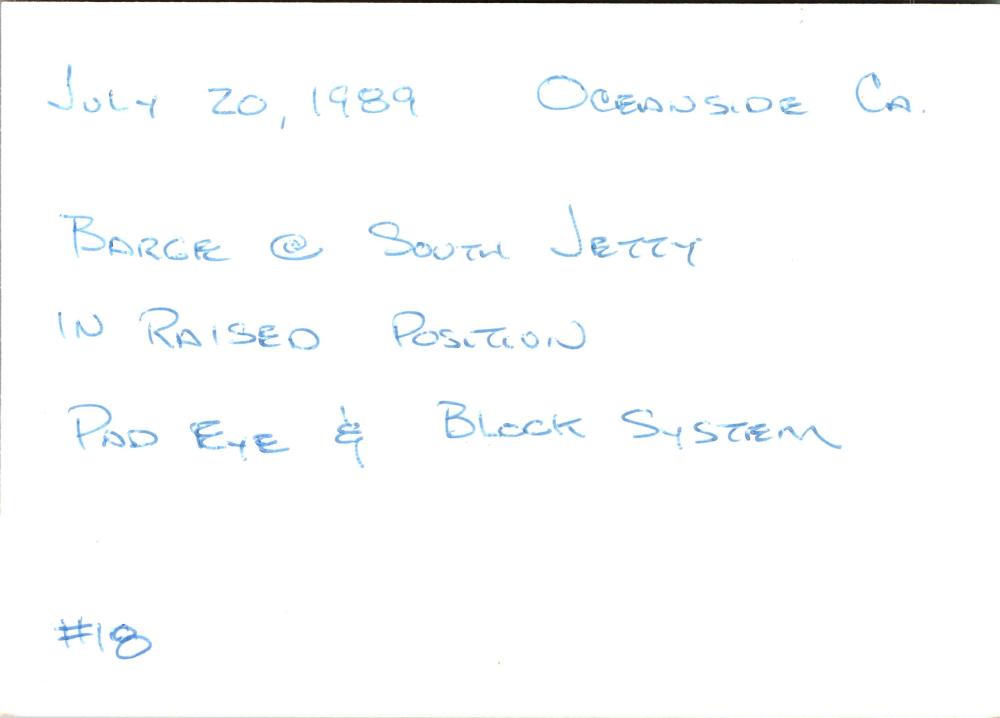 July 20, 1989 Oceanside Ca.
Barge @ South Jetty
in Raised Position
Pad Eye & Block System
#18